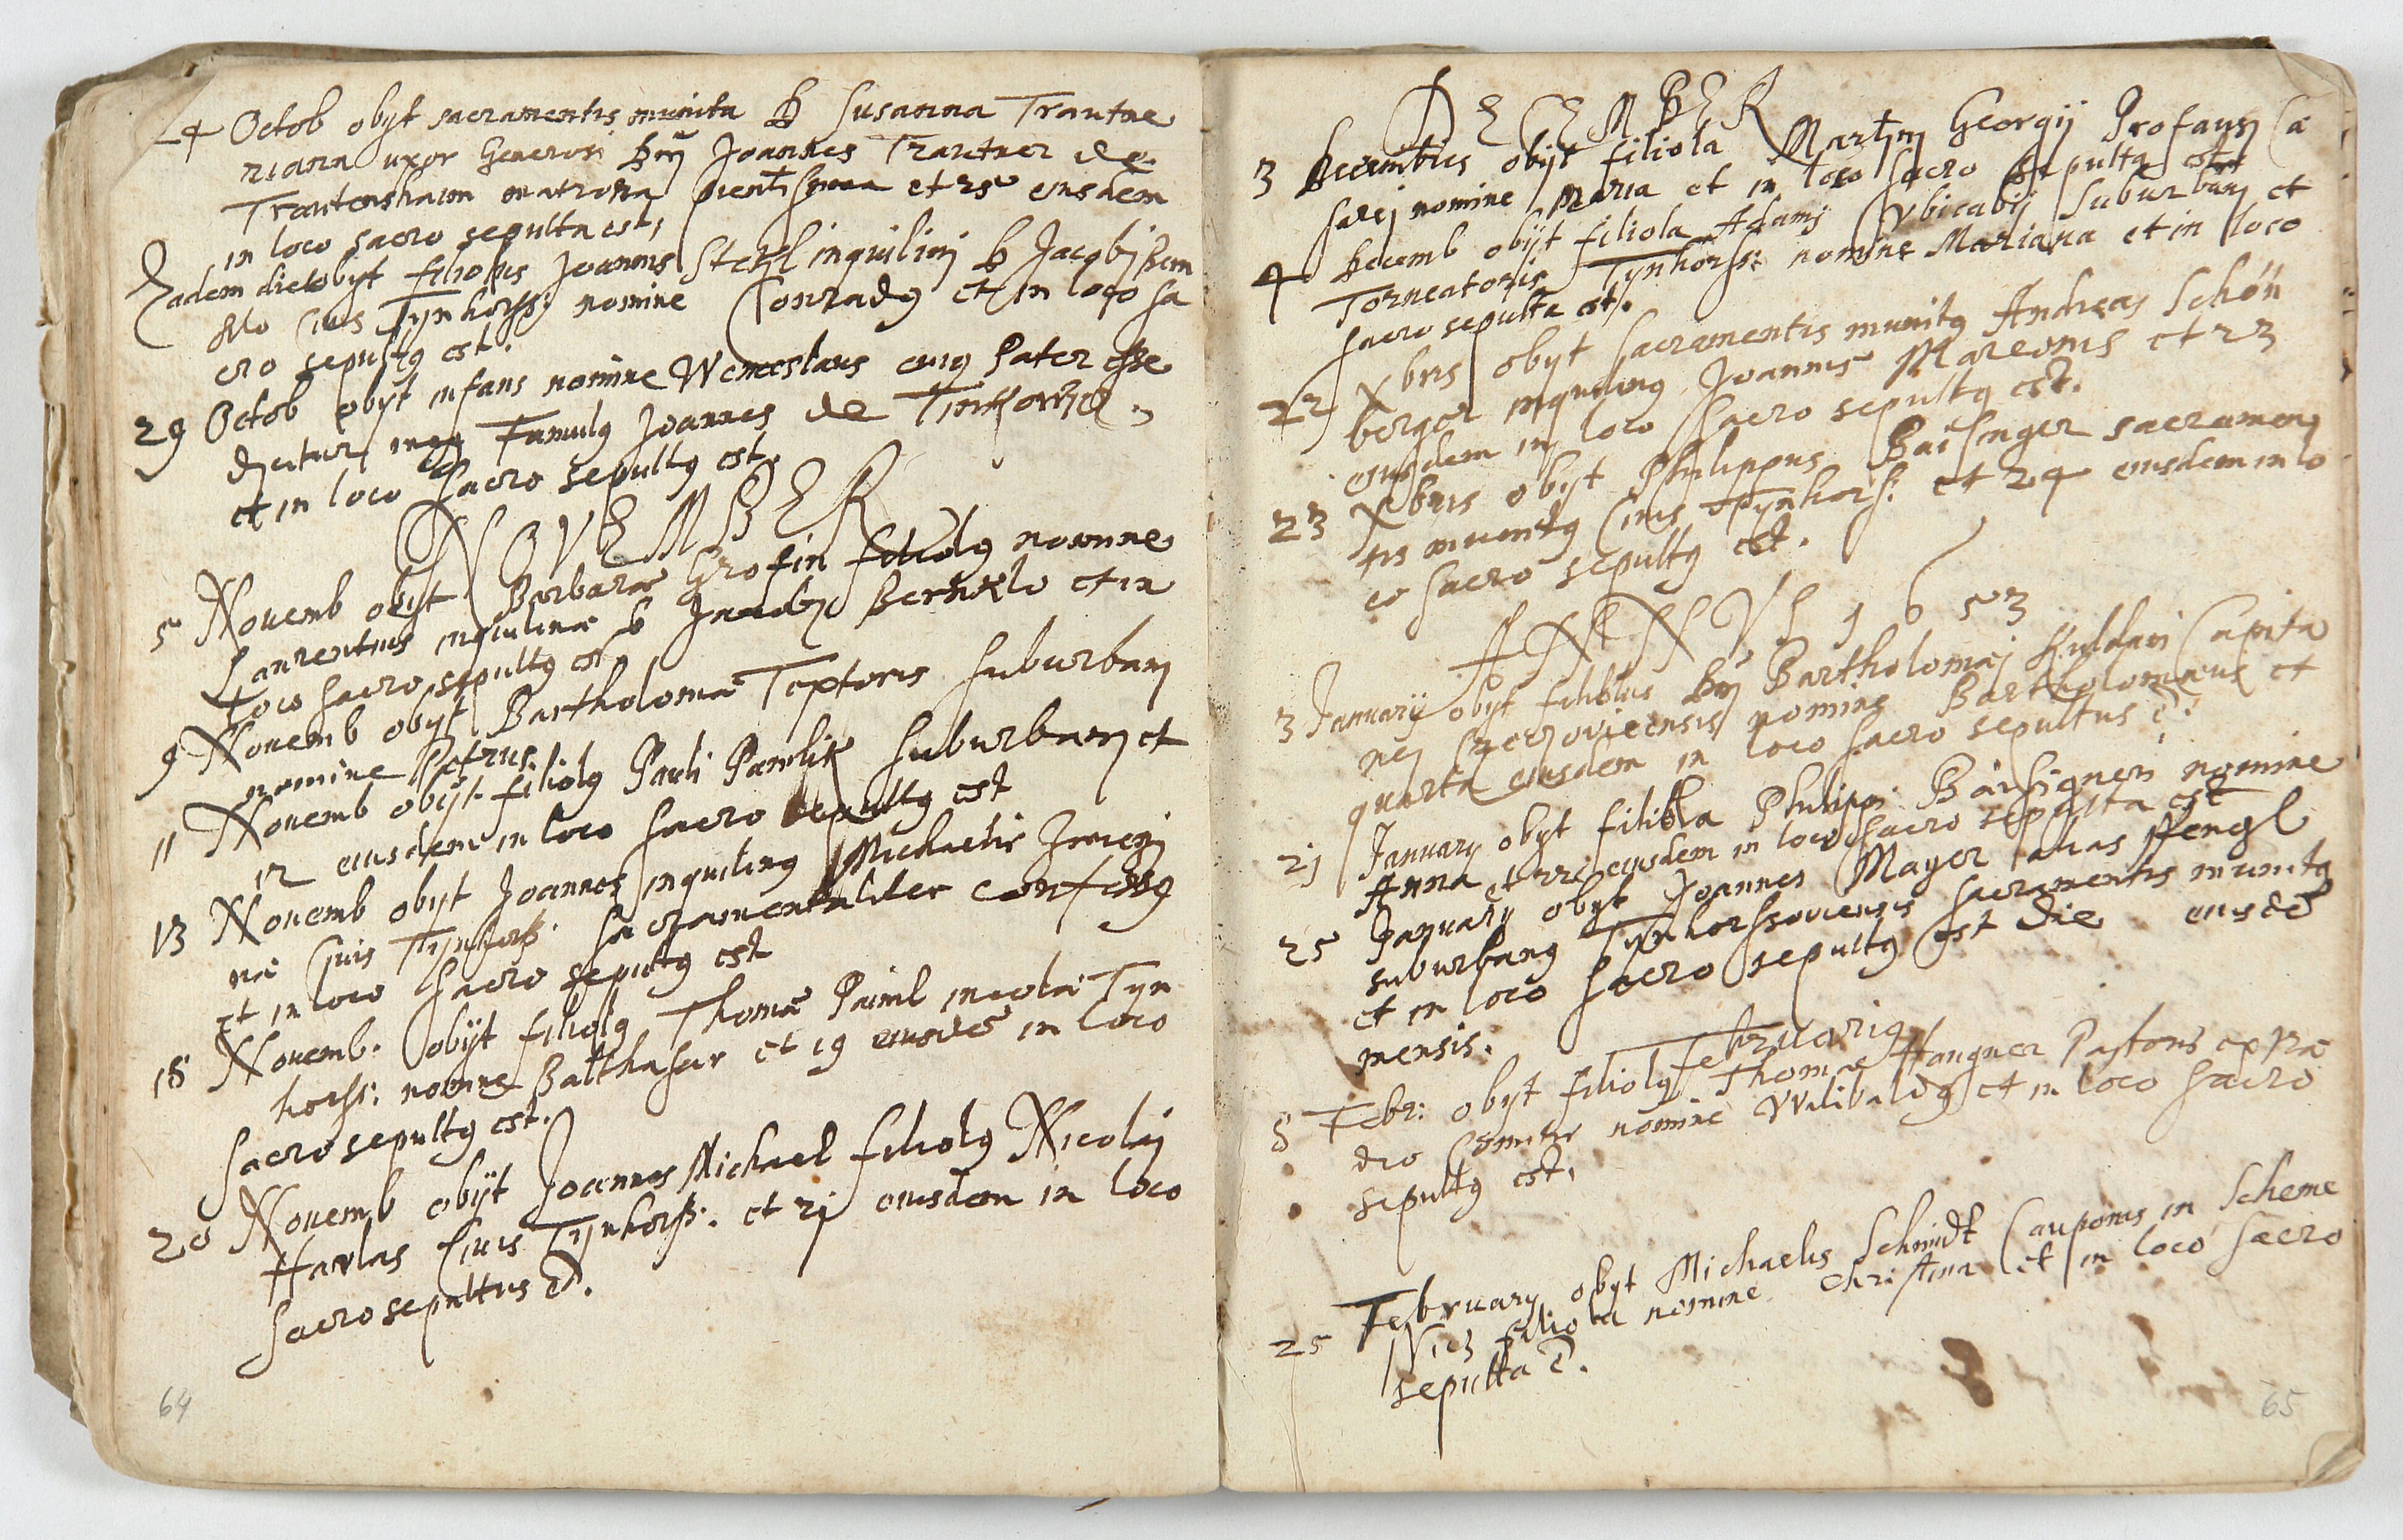 24 Octob obyt sacramentis munita D Susanna Trautne
riana uxor Generosi Dnj Joannes Trautner de
Trautenshaim matrona pientissima et 25 eiusdem
in loco sacro sepulta est,
Eadem die obyt filiolus Joannis Stekl inquilini D Jacobj Hem
Civis Tynhorss: nomine Conradg et in loco sa
cro sepultg est.
29 Octob obyt infans nomine Wenceslaus cuig Pater esse
dicitur Famulg Joannes de
et in loco Sacro sepultg est.
NOVEMBER
5 Novemb obyt Barbarae Grosin filiolg nomine
Laurentius inquilinae D et in
loco sacro sepultg est
9 Novemb obyt Bartholomae Textoris suburbanj
nomine Petrus.
11 Novemb obyt filiolg Pauli Pawlik suburbanj et
12 eiusdem in loco sacro sepultg est
13 Novemb obyt Joannes inquiling Michaelis
nae Civis Tynhorss. sacramentaliter confessg
et in loco sacro sepultg est
18 Novemb. obyt filiolg Thomae Paiml incolae Tyn
horss: nomine Balthasar et 19 eiusde in loco
sacro sepultg est.
20 Novemb obyt Joannes Michael filiolg Nicolaj
Havlas Civis Tynhorss. et 21 eiusdem in loco
sacro sepultus e.
64
DECEMBER
3 Decembris obyt filiola Martinj Georgij Profausj Ca
sarej nomine Maria et in loco sacro sepulta est
4 Decemb obyt filiola Adamj suburbanj et
Torneatoris Tynhorss: nomine Mariana et in loco
sacro sepulta est.
22 Xbris obyt sacramentis munitg Andreas Schön
berger inquiling Joannis Marconis et 23
eiusdem in loco sacro sepultg est.
23 Xbris obyt Philippus Baisinger sacramen
tis munitg Civis Tynhorss: et 24 eiusdem in lo
co sacro sepultg est.
ANNVS 1653
3 Januarij obyt filiolus Dnj Bartholomaej Capita
nej nomine Bartholomaeus et
quarta eiusdem in loco sacro sepultus e.
21 Januarj obyt filiola Philippi nomine
Anna et 22 eiusdem in loco sacro sepulta est
25 Januarij obyt Joannes Mayer alias Pfengl
suburbang Tynhorssoviensis sacramentis munitg
et in loco sacro sepultg est die eiusde
mensis.
Februarig
8 Febr: obyt filiolg Thomae Hangner Pastoris ex Prae
dio nomine Wilibaldg et in loco sacro
sepultg est.
25 February obyt Michaelis Schmidt Cauponis in Scheme
Nicz filiola nomine Christina et in loco sacro
sepulta e.
65